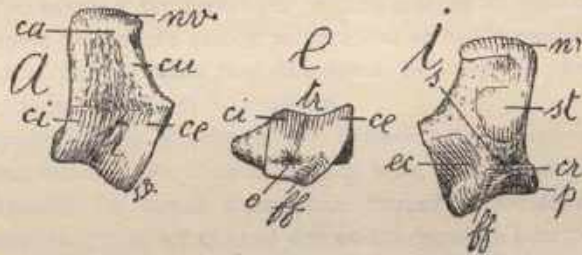 ca
nv
a
cu
ci
ce
e
tr
ci
ce
o
ff
i
nv
s
st
ec
cr
p
ff